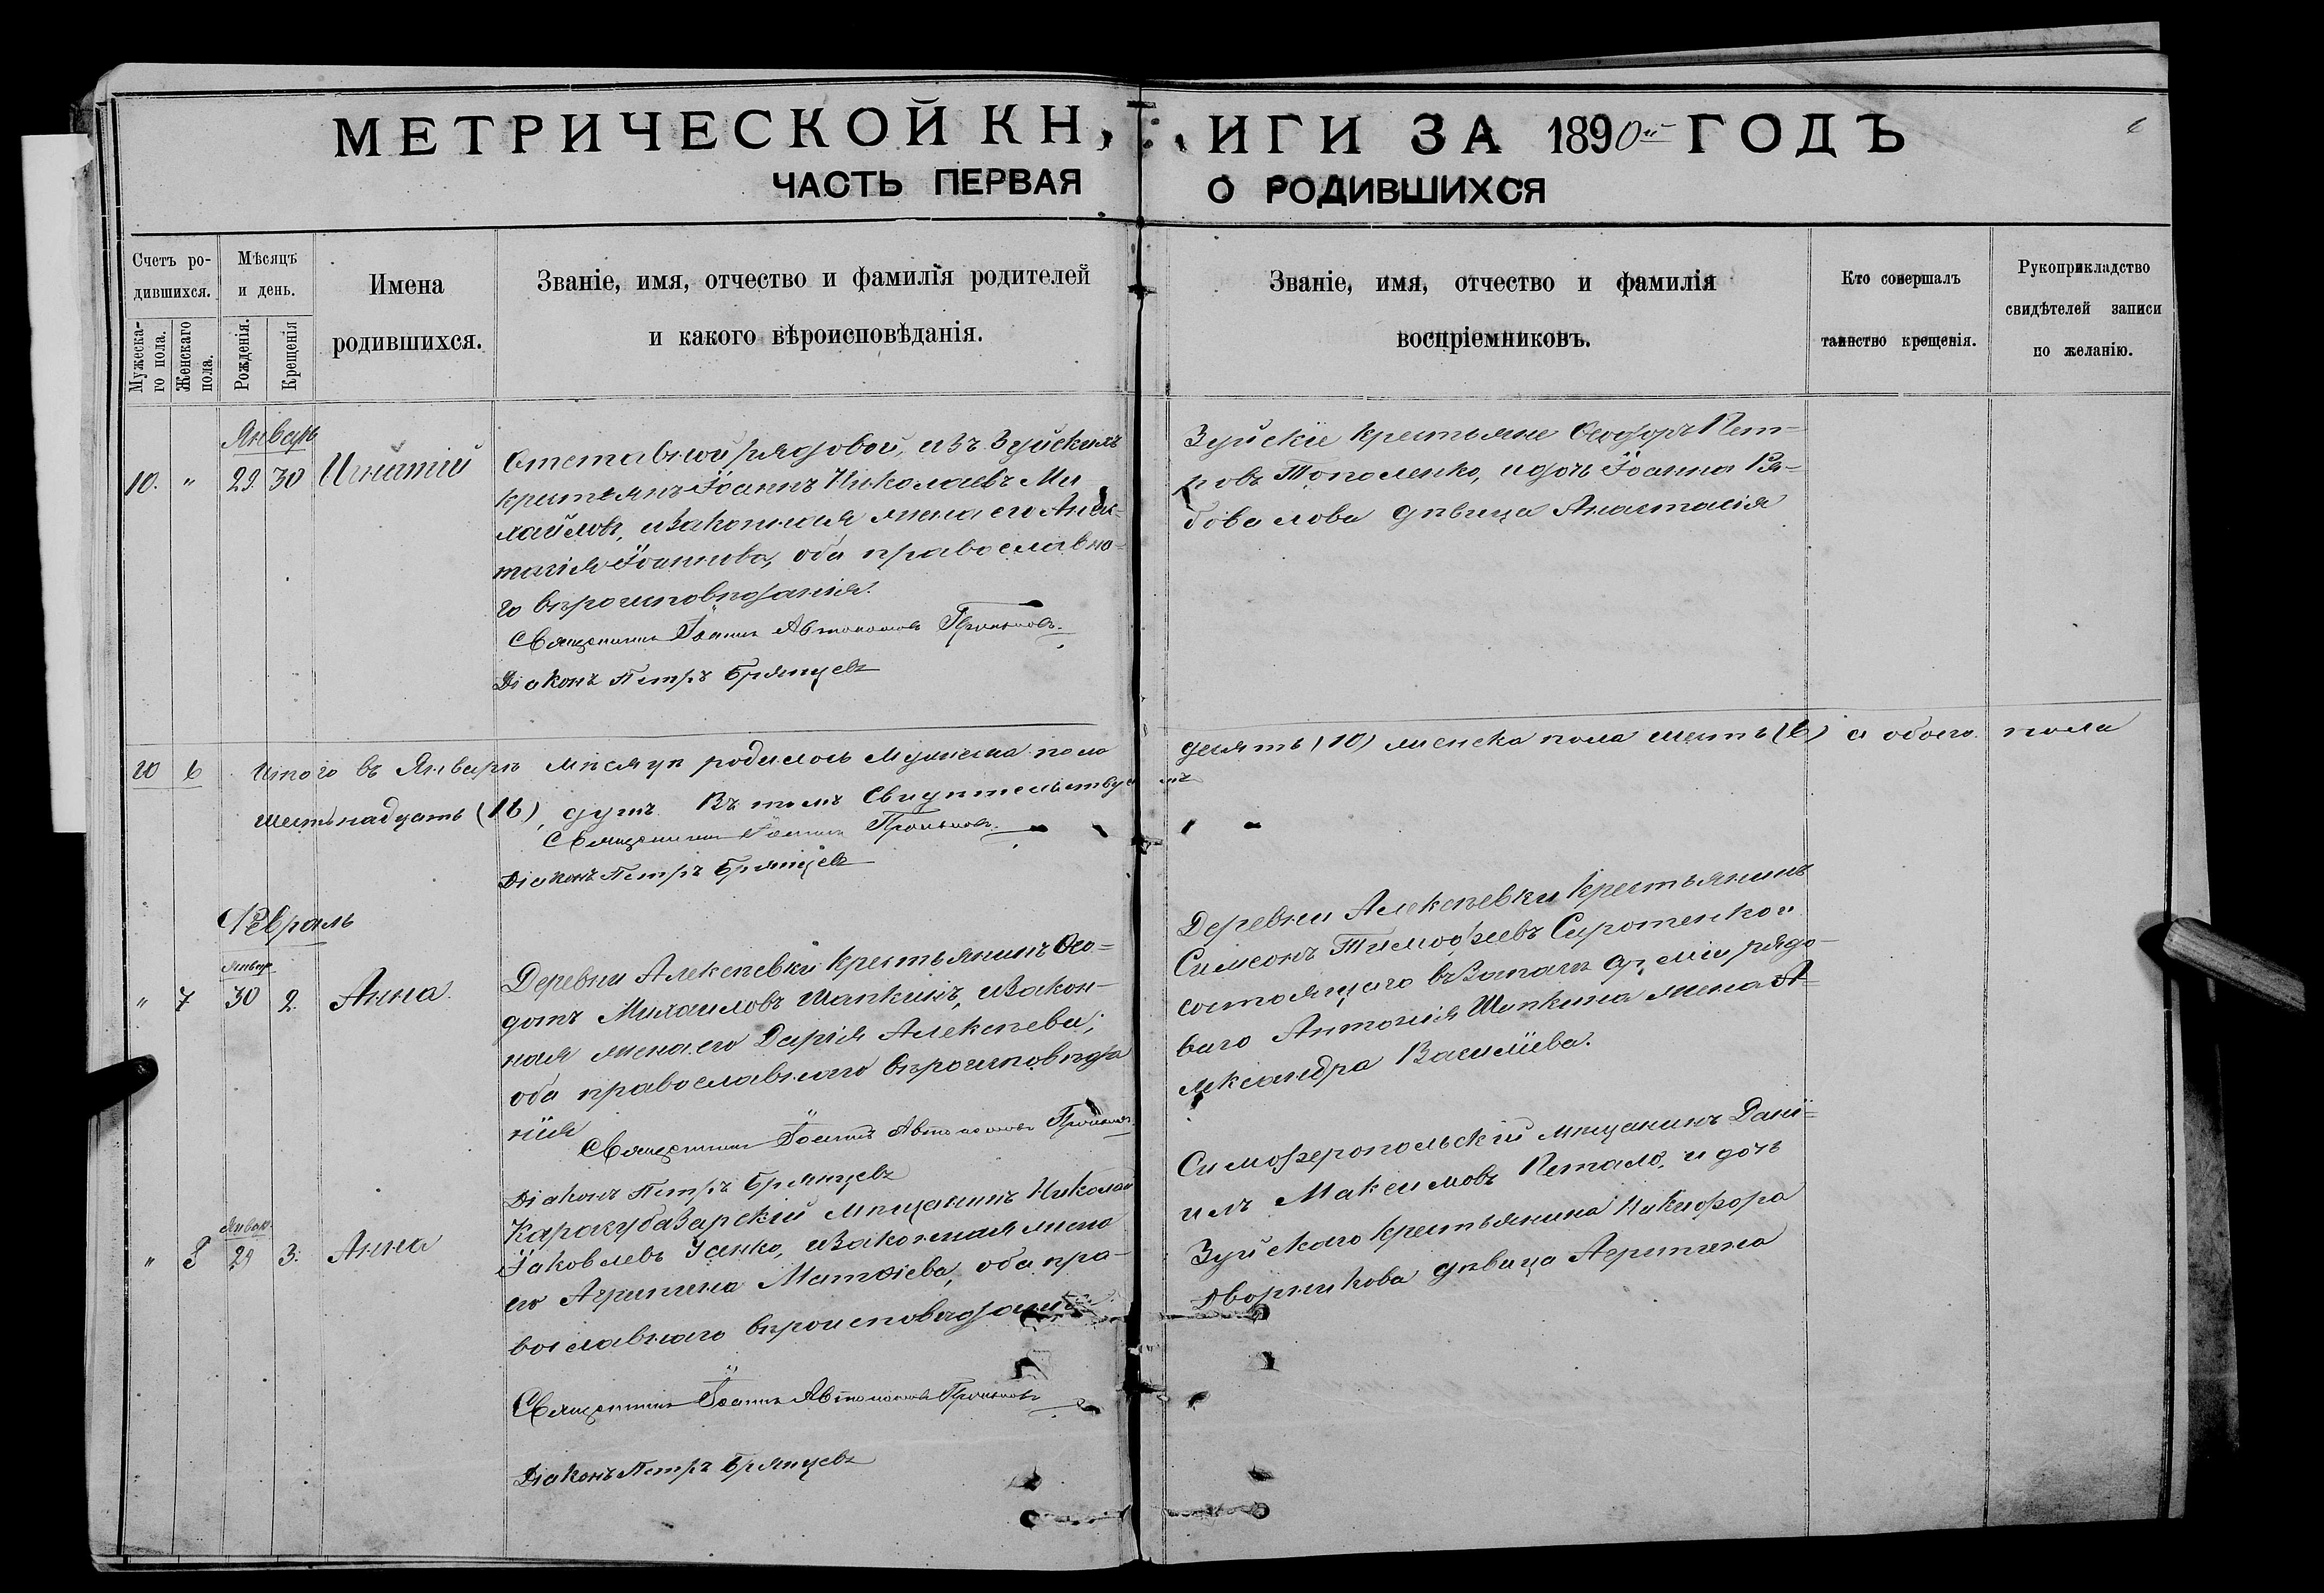 МЕТРИЧЕСКОЙ КНИГИ ЗА 1890й ГОДЪ
6
ЧАСТЬ ПЕРВАЯ О РОДИВШИХСЯ
Счетъ родившихся.
Мужескаго пола.
Женскаго пола.
Мѣсяцъ и день.
Рожденія.
Крещенія
Имена родившихся.
Званіе, имя, отчество и фамилія родителей
и какого вѣроисповѣданія.
Званіе, имя, отчество и фамилія
воспріемниковъ.
Кто совершалъ
таинство крещенія.
Рукоприкладство
свидѣтелей записи
по желанію.
Январь
10. " 29. 30 Игнатій
Отставной рядовой, изъ Зуйскихъ
крестьянъ Іоаннъ Николаевъ Ми
хайловъ, и законная жена его Анас-
тасія Іоаннова, оба православна-
го вѣроисповѣданія.
Священникъ Іоаннъ Автономовъ
Діаконъ Петръ Брянцевъ
Зуйскіе крестьяне Ѳеодоръ Пет-
ровъ Тополенко, и дочь Іоанна Ря-
бовалова дѣвица Анастасія
10 6 Итого въ Январѣ мѣсяцѣ родилось мужеска пола десять (10) женска пола шесть (6) а обоего пола
шестьнадцать (16) душъ. Въ томъ свидѣтельствуемъ
Священникъ Іоаннъ
Діаконъ Петръ Брянцевъ
Февраль
Январ.
" 7 30 2. Анна.
Деревни Алексѣевки крестьянинъ Ѳео-
дотъ Михаиловъ Шапкинъ, и закон-
ная жена его Дарія Алексѣева,
оба православнаго вѣроисповѣда
нія
Священникъ Іоаннъ Автономовъ
Діаконъ Петръ Брянцевъ
Деревни Алексѣевки крестьянинъ
Симеонъ Тимофеевъ Сиротенко и
состоящаго въ запасѣ арміи рядо-
ваго Антонія Шапкина жена А-
лександра Василіева.
Январ.
" 8 29 3. Анна
Карасубазарскій мѣщанинъ Николай
Іаковлевъ Усенко, и законная жена
его Агрипина Матѳіева, оба пра-
вославнаго вѣроисповѣданія
Священникъ Іоаннъ Автономовъ
Діаконъ Петръ Брянцевъ
Симферопольскій мѣщанинъ Дані-
илъ Максимовъ Петало, и дочь
Зуйскаго крестьянина Никифора
Дворникова дѣвица Агрипина